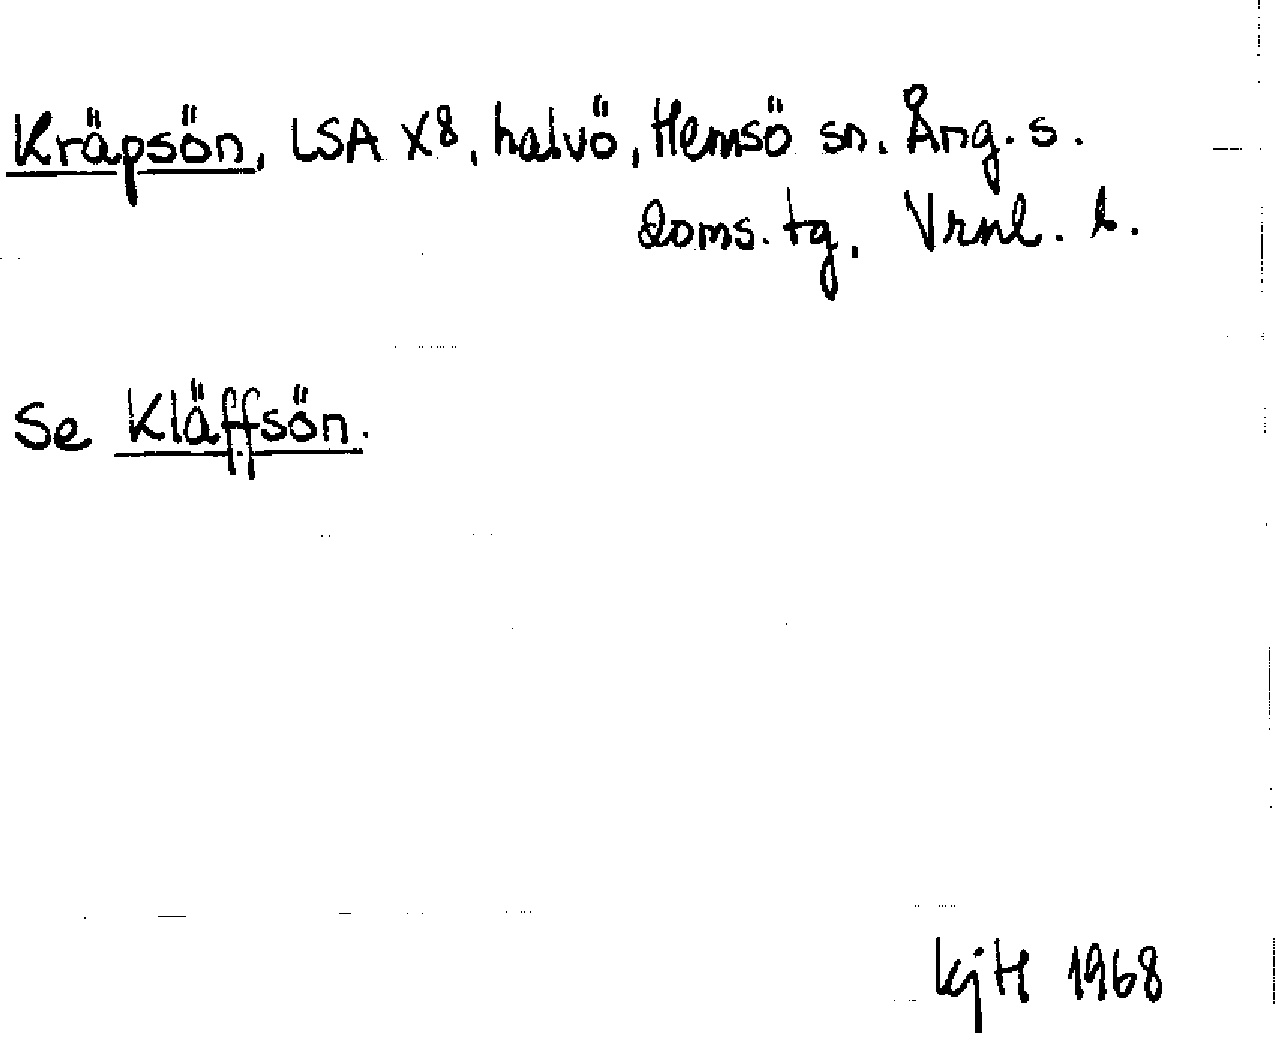 Kräpsön, LSA X8, halvö, Hemsö sn. Ång. s.
doms. tg. Vrnl. l.
Se Kläffsön.
KjH 1968